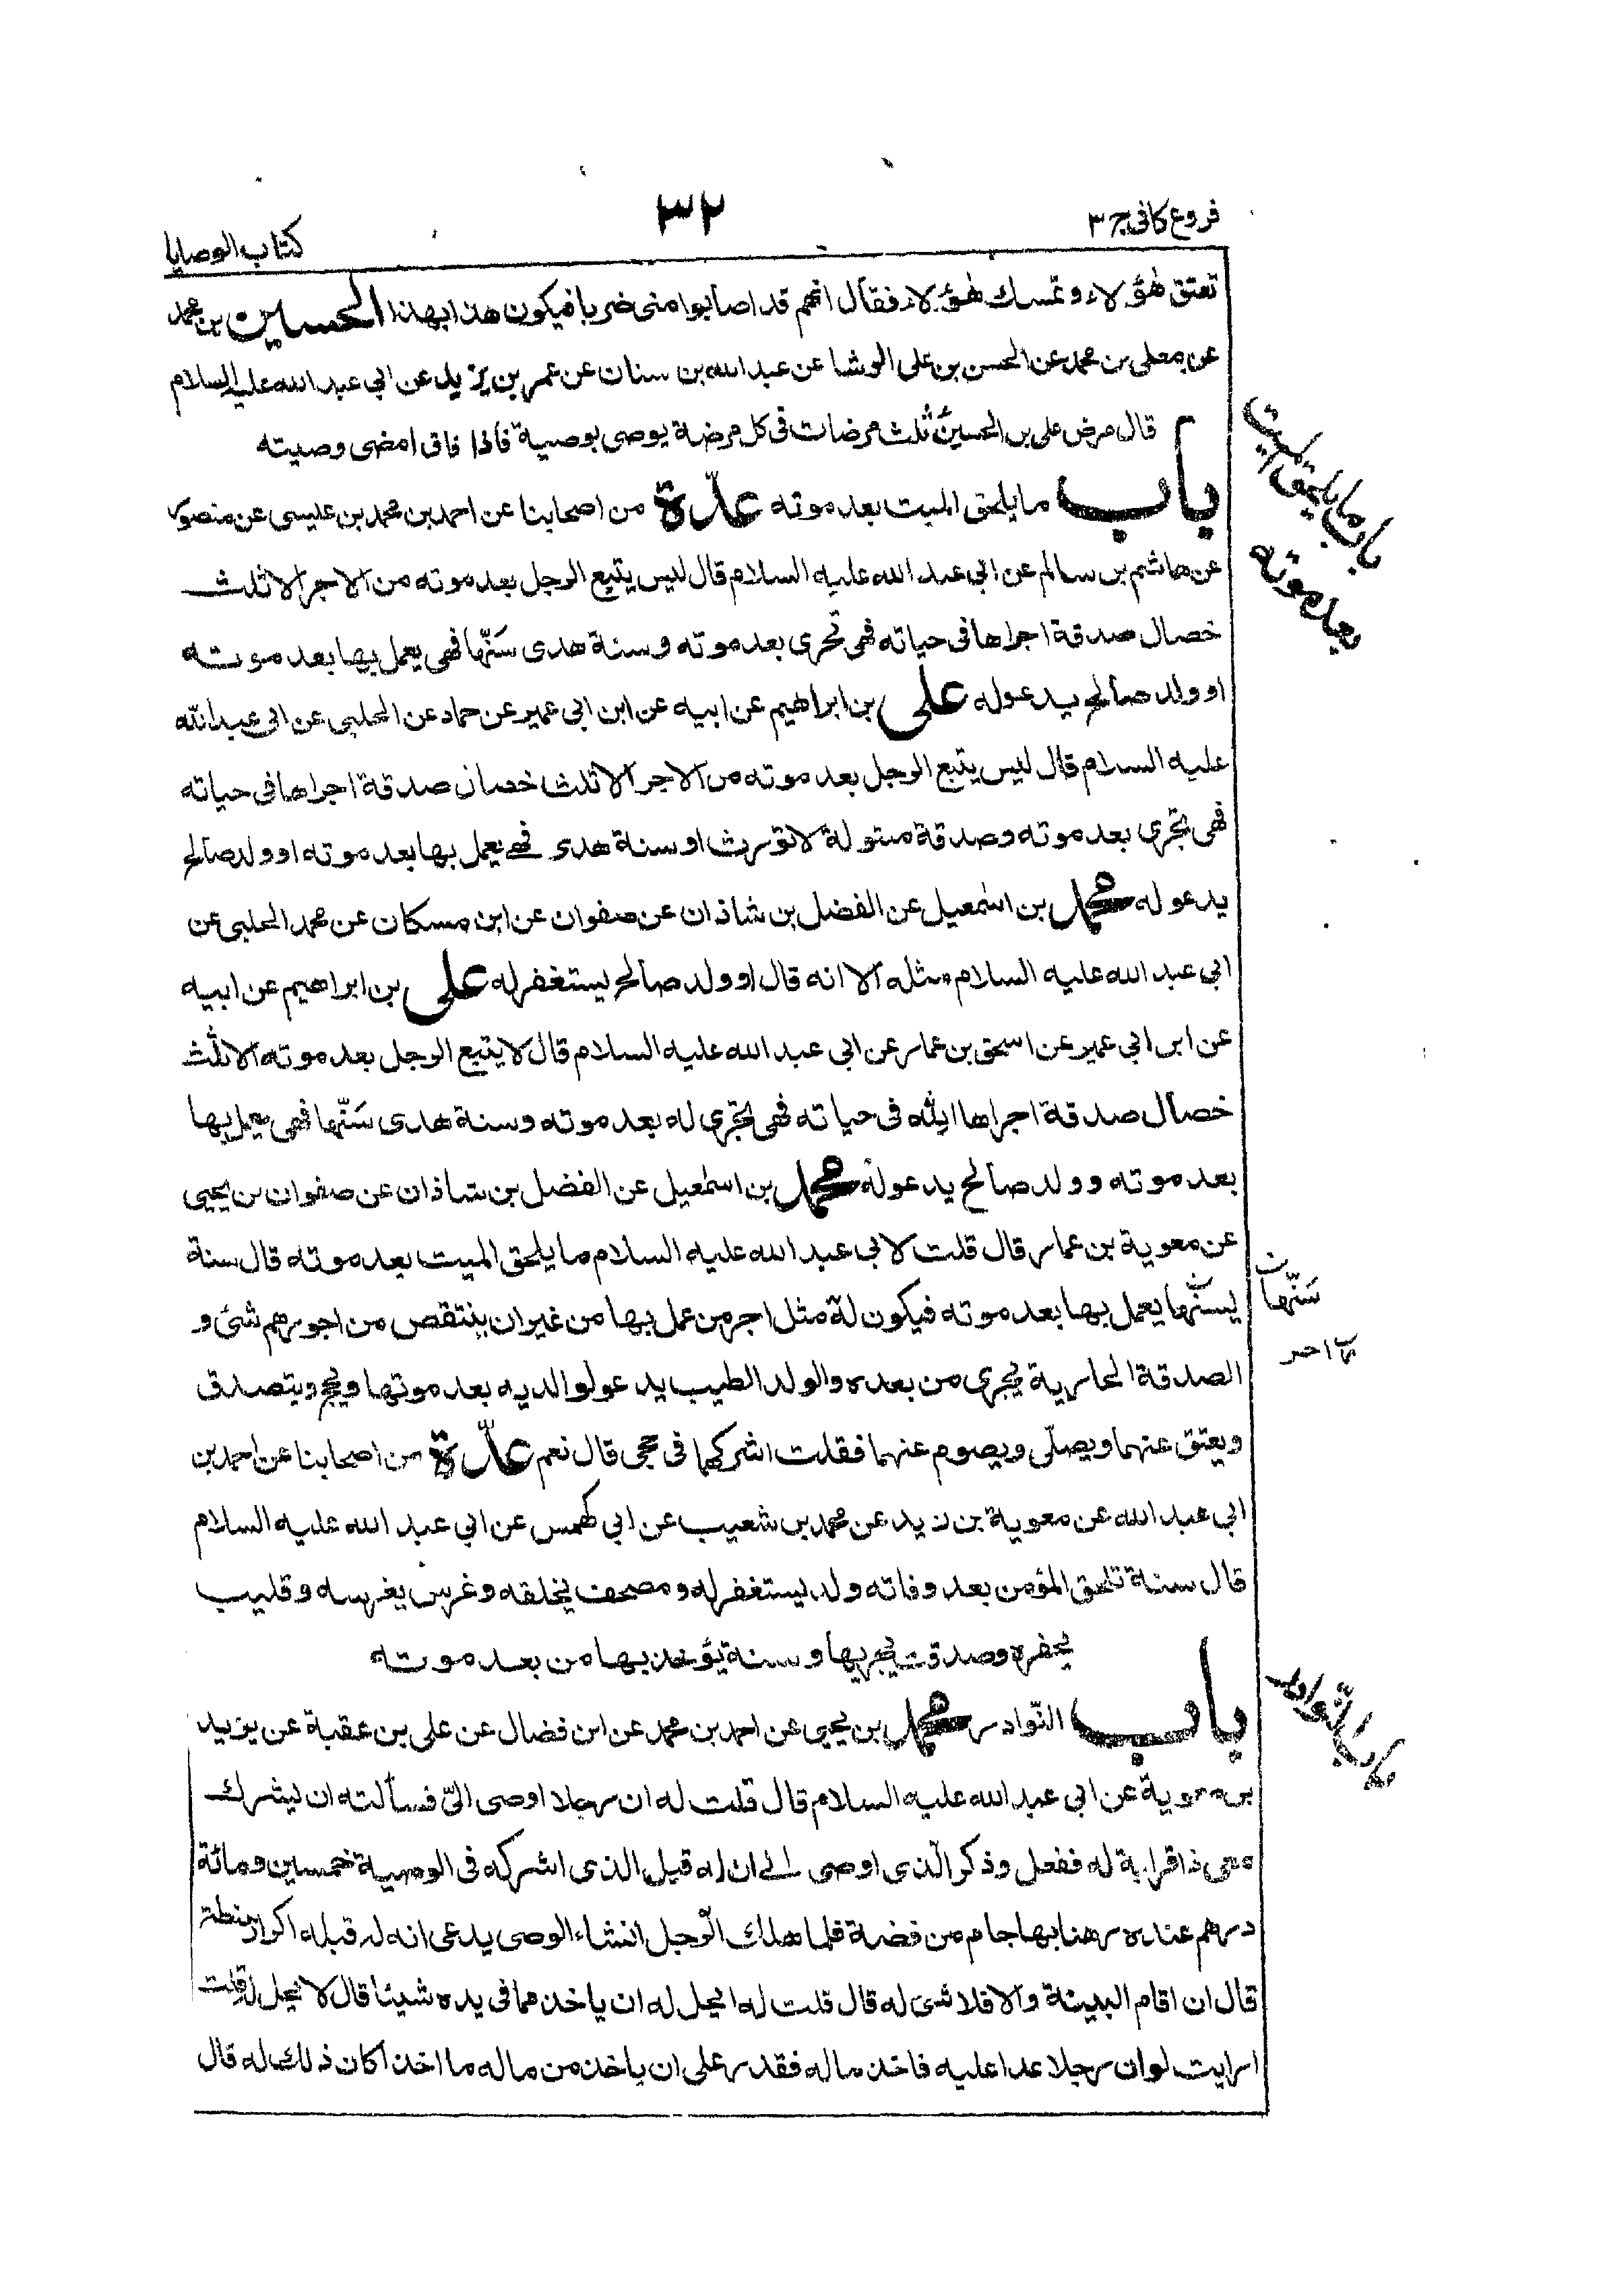 فروع كافى ج ٣
٣٢
كتاب الوصايا
تعتق هؤلاء وتمسك هؤلاء فقال انهم قد اصابوا منى ضربا فيكون هذا بهذا الحسين بن محمد
عن معلى بن محمد عن الحسن بن على الوشا عن عبد الله بن سنان عن عمر بن يزيد عن ابي عبد الله عليه السلام
قال مرض على بن الحسين ثلث مرضات فى كل مرضة يوصى بوصية فاذا فاق امضى وصيته
باب ما يلحق الميت بعد موته عدّة من اصحابنا عن احمد بن محمد بن عليسى عن منصور
عن هاشم بن سالم عن ابي عبد الله عليه السلام قال ليس يتبع الرجل بعد موته من الاجر الا ثلث
خصال صدقة اجراها فى حياته فهى تجرى بعد موته وسنة هدى سَنّها فهى يعمل بها بعد موته
او ولد صالح يدعو له على بن ابراهيم عن ابيه عن ابن ابي عمير عن حماد عن الحلبى عن ابي عبد الله
عليه السلام قال ليس يتبع الرجل بعد موته من الاجر الا ثلث خصال صدقة اجراها فى حياته
فهى تجرى بعد موته وصدقة مبتولة لا تورث او سنة هدى فهى يعمل بها بعد موته او ولد صالح
يدعو له محمد بن اسمعيل عن الفضل بن شاذان عن صفوان عن ابن مسكان عن محمد الحلبى عن
ابي عبد الله عليه السلام مثله الا انه قال او ولد صالح يستغفر له على بن ابراهيم عن ابيه
عن ابن ابي عمير عن اسحق بن عمار عن ابي عبد الله عليه السلام قال لا يتبع الرجل بعد موته الا ثلث
خصال صدقة اجراها لله فى حياته فهى تجرى له بعد موته وسنة هدى سَنّها فهى يعمل بها
بعد موته وولد صالح يدعو له محمد بن اسمعيل عن الفضل بن شاذان عن صفوان بن يحيى
عن معوية بن عمار قال قلت لابي عبد الله عليه السلام ما يلحق الميت بعد موته قال سنة
يسنّها يعمل بها بعد موته فيكون له مثل اجر من عمل بها من غير ان ينتقص من اجورهم شئ و
الصدقة الجارية تجرى من بعده والولد الطيب يدعو لوالديه بعد موتهما ويحج ويتصدق
ويعتق عنهما ويصلّى ويصوم عنهما فقلت اشركهما فى حجى قال نعم عدّة من اصحابنا عن احمد بن
ابي عبد الله عن معوية بن زيد عن محمد بن شعيب عن ابي كهمس عن ابي عبد الله عليه السلام
قال ستة تلحق المؤمن بعد وفاته ولد يستغفر له ومصحف يخلفه وغرس يغرسه وقليب
يحفره وصدقة يجريها وسنة يؤخذ بها من بعد موته
باب النّوادر محمد بن يحيى عن احمد بن محمد عن ابن فضال عن على بن عقبة عن يزيد
بن معوية عن ابي عبد الله عليه السلام قال قلت له ان رجلا اوصى الىّ فسألته ان يشرك
معى ذا قرابة له ففعل وذكر الّذى اوصى الى ان له قبل الذى اشركه فى الوصية خمسين ومائة
درهم عنده رهنا بها جام من فضة فلما هلك الرّجل انشاء الوصى يدعى انه له قبله اكرار حنطة
قال ان اقام البينة والا فلا شئ له قال قلت له ايحل له ان ياخذ مما فى يده شيئا قال لا يحل له قلت
ارايت لو ان رجلا عدا عليه فاخذ ماله فقدر على ان ياخذ من ماله ما اخذ اكان ذلك له قال
باب ما يلحق الميت
بعد موته
سَنّها
باب النّوادر